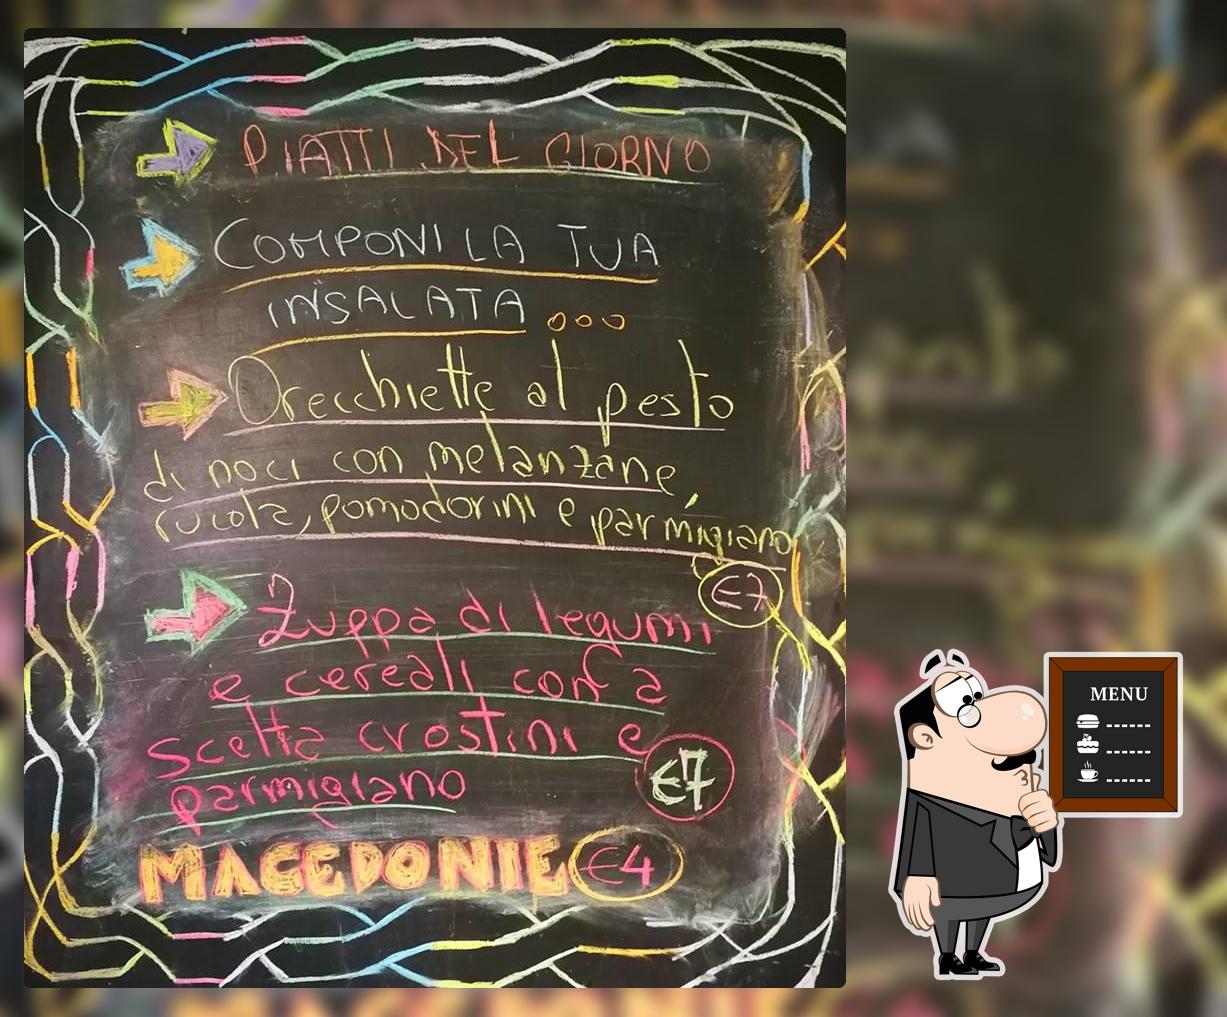 PIATTI DEL GIORNO
COMPONI LA TUA
INSALATA ...
Orecchiette al pesto
di noci con melanzane,
rucola, pomodorini e parmigiano
€7
Zuppa di legumi
e cereali con a
scelta crostini e
parmigiano
€7
MACEDONIE €4
MENU